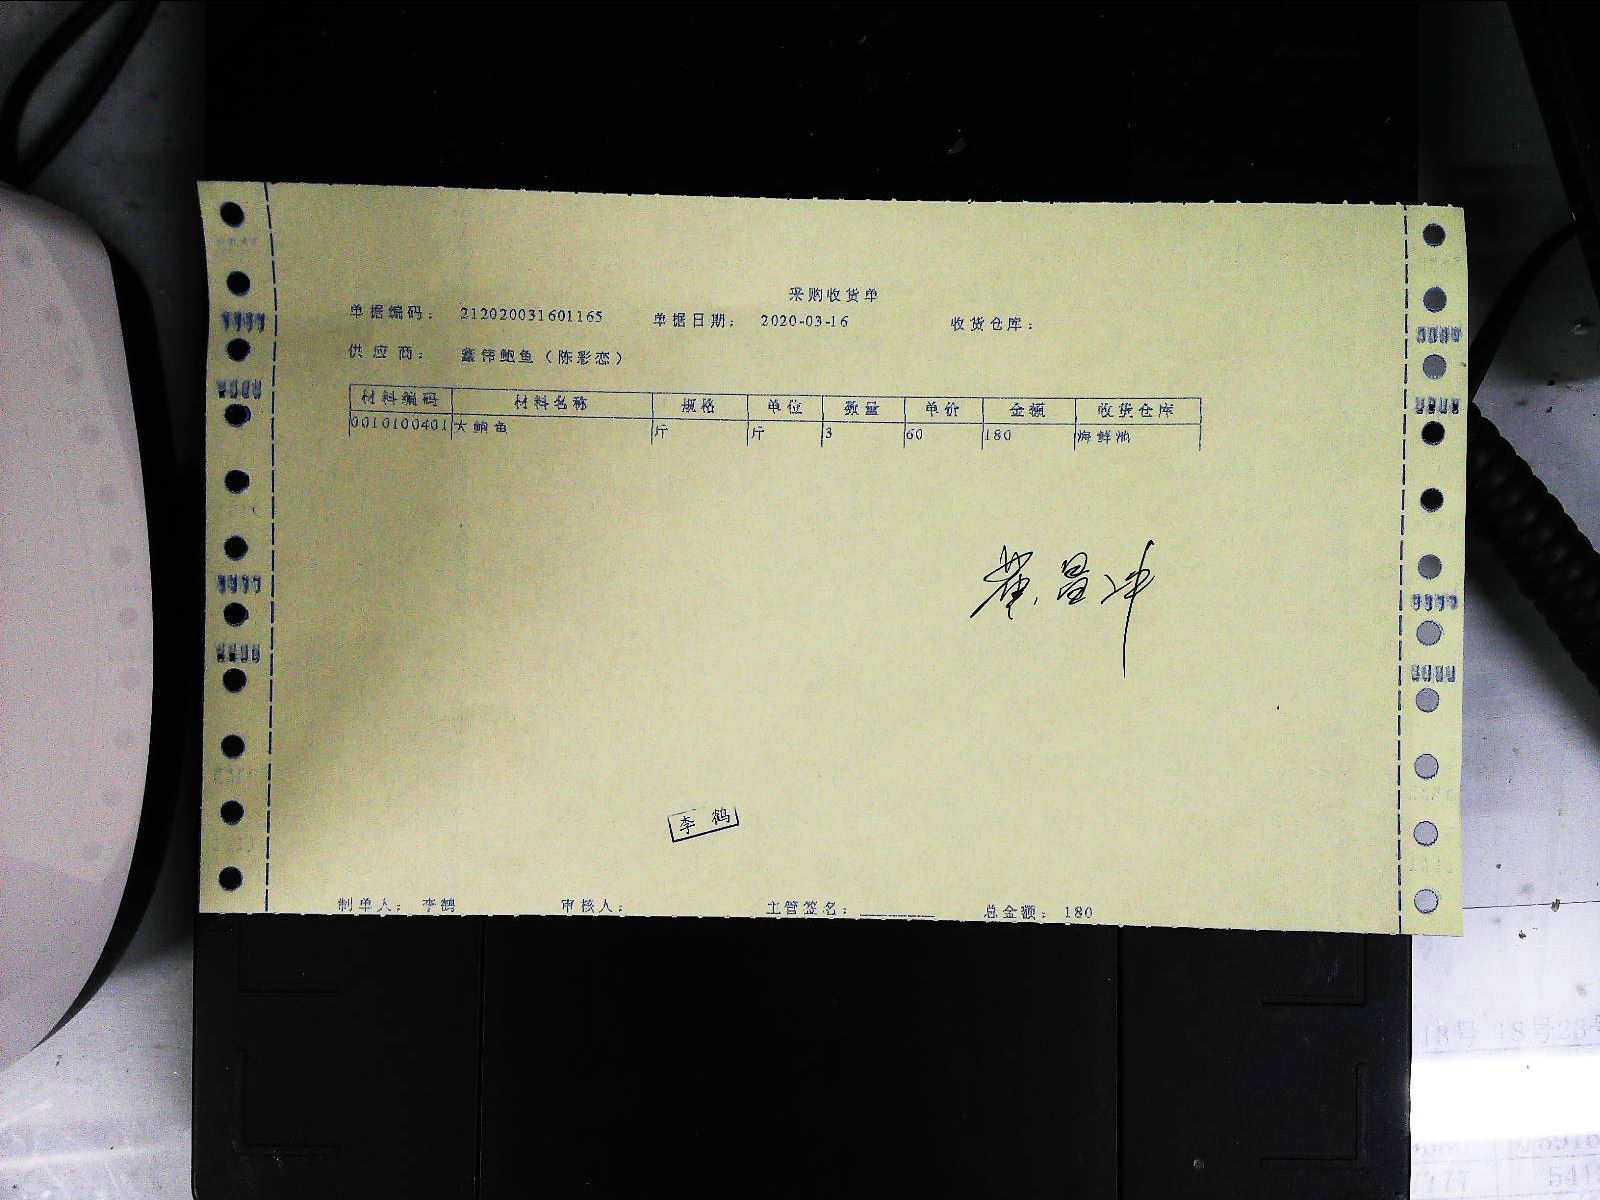 采购收货单
单据编码： 212020031601165 单据日期： 2020-03-16 收货仓库：
供应商： 鑫伟鲍鱼（陈彩恋）
材料编码 材料名称 规格 单位 数量 单价 金额 收货仓库
0010100401 大鲍鱼 斤 斤 3 60 180 海鲜池
李鹤
制单人： 李鹤 审核人： 主管签名： 总金额： 180
18号 18号23号